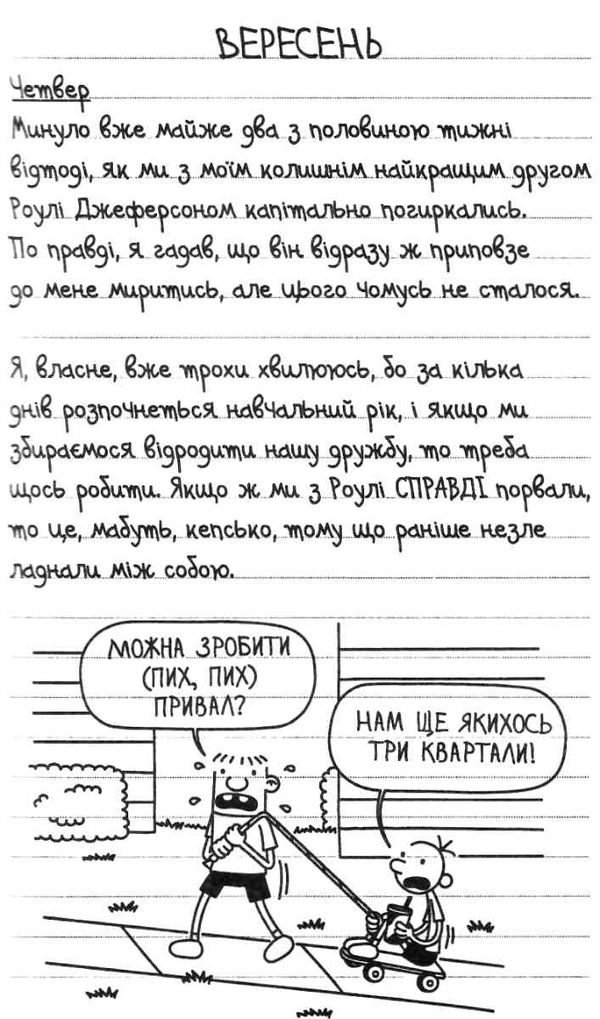 ВЕРЕСЕНЬ
Четвер
Минуло вже майже два з половиною тижні
відтоді, як ми з моїм колишнім найкращим другом
Роулі Джеферсоном капітально погиркались.
По правді, я гадав, що він відразу ж приповзе
до мене миритись, але цього чомусь не сталося.
Я, власне, вже трохи хвилююсь, бо за кілька
днів розпочнеться навчальний рік, і якщо ми
збираємося відродити нашу дружбу, то треба
щось робити. Якщо ж ми з Роулі СПРАВДІ порвали,
то це, мабуть, кепсько, тому що раніше незле
ладнали між собою.
МОЖНА ЗРОБИТИ
(ПИХ, ПИХ)
ПРИВАЛ?
НАМ ЩЕ ЯКИХОСЬ
ТРИ КВАРТАЛИ!